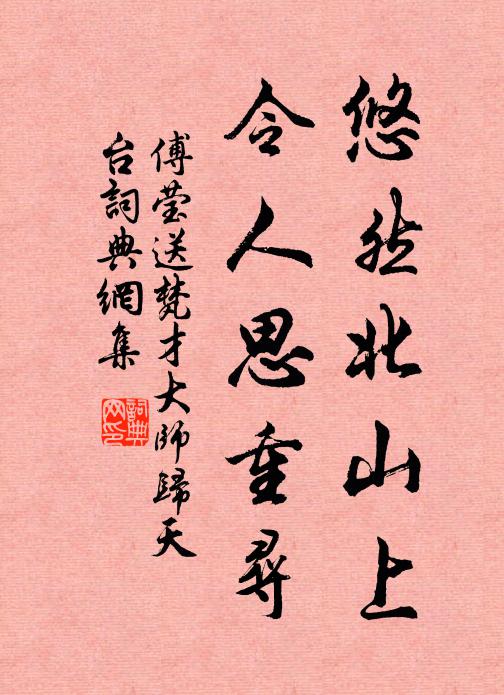 悠然北山上
令人思重尋
傅瑩送梵才大師歸天
台詞典網集
詞典網印